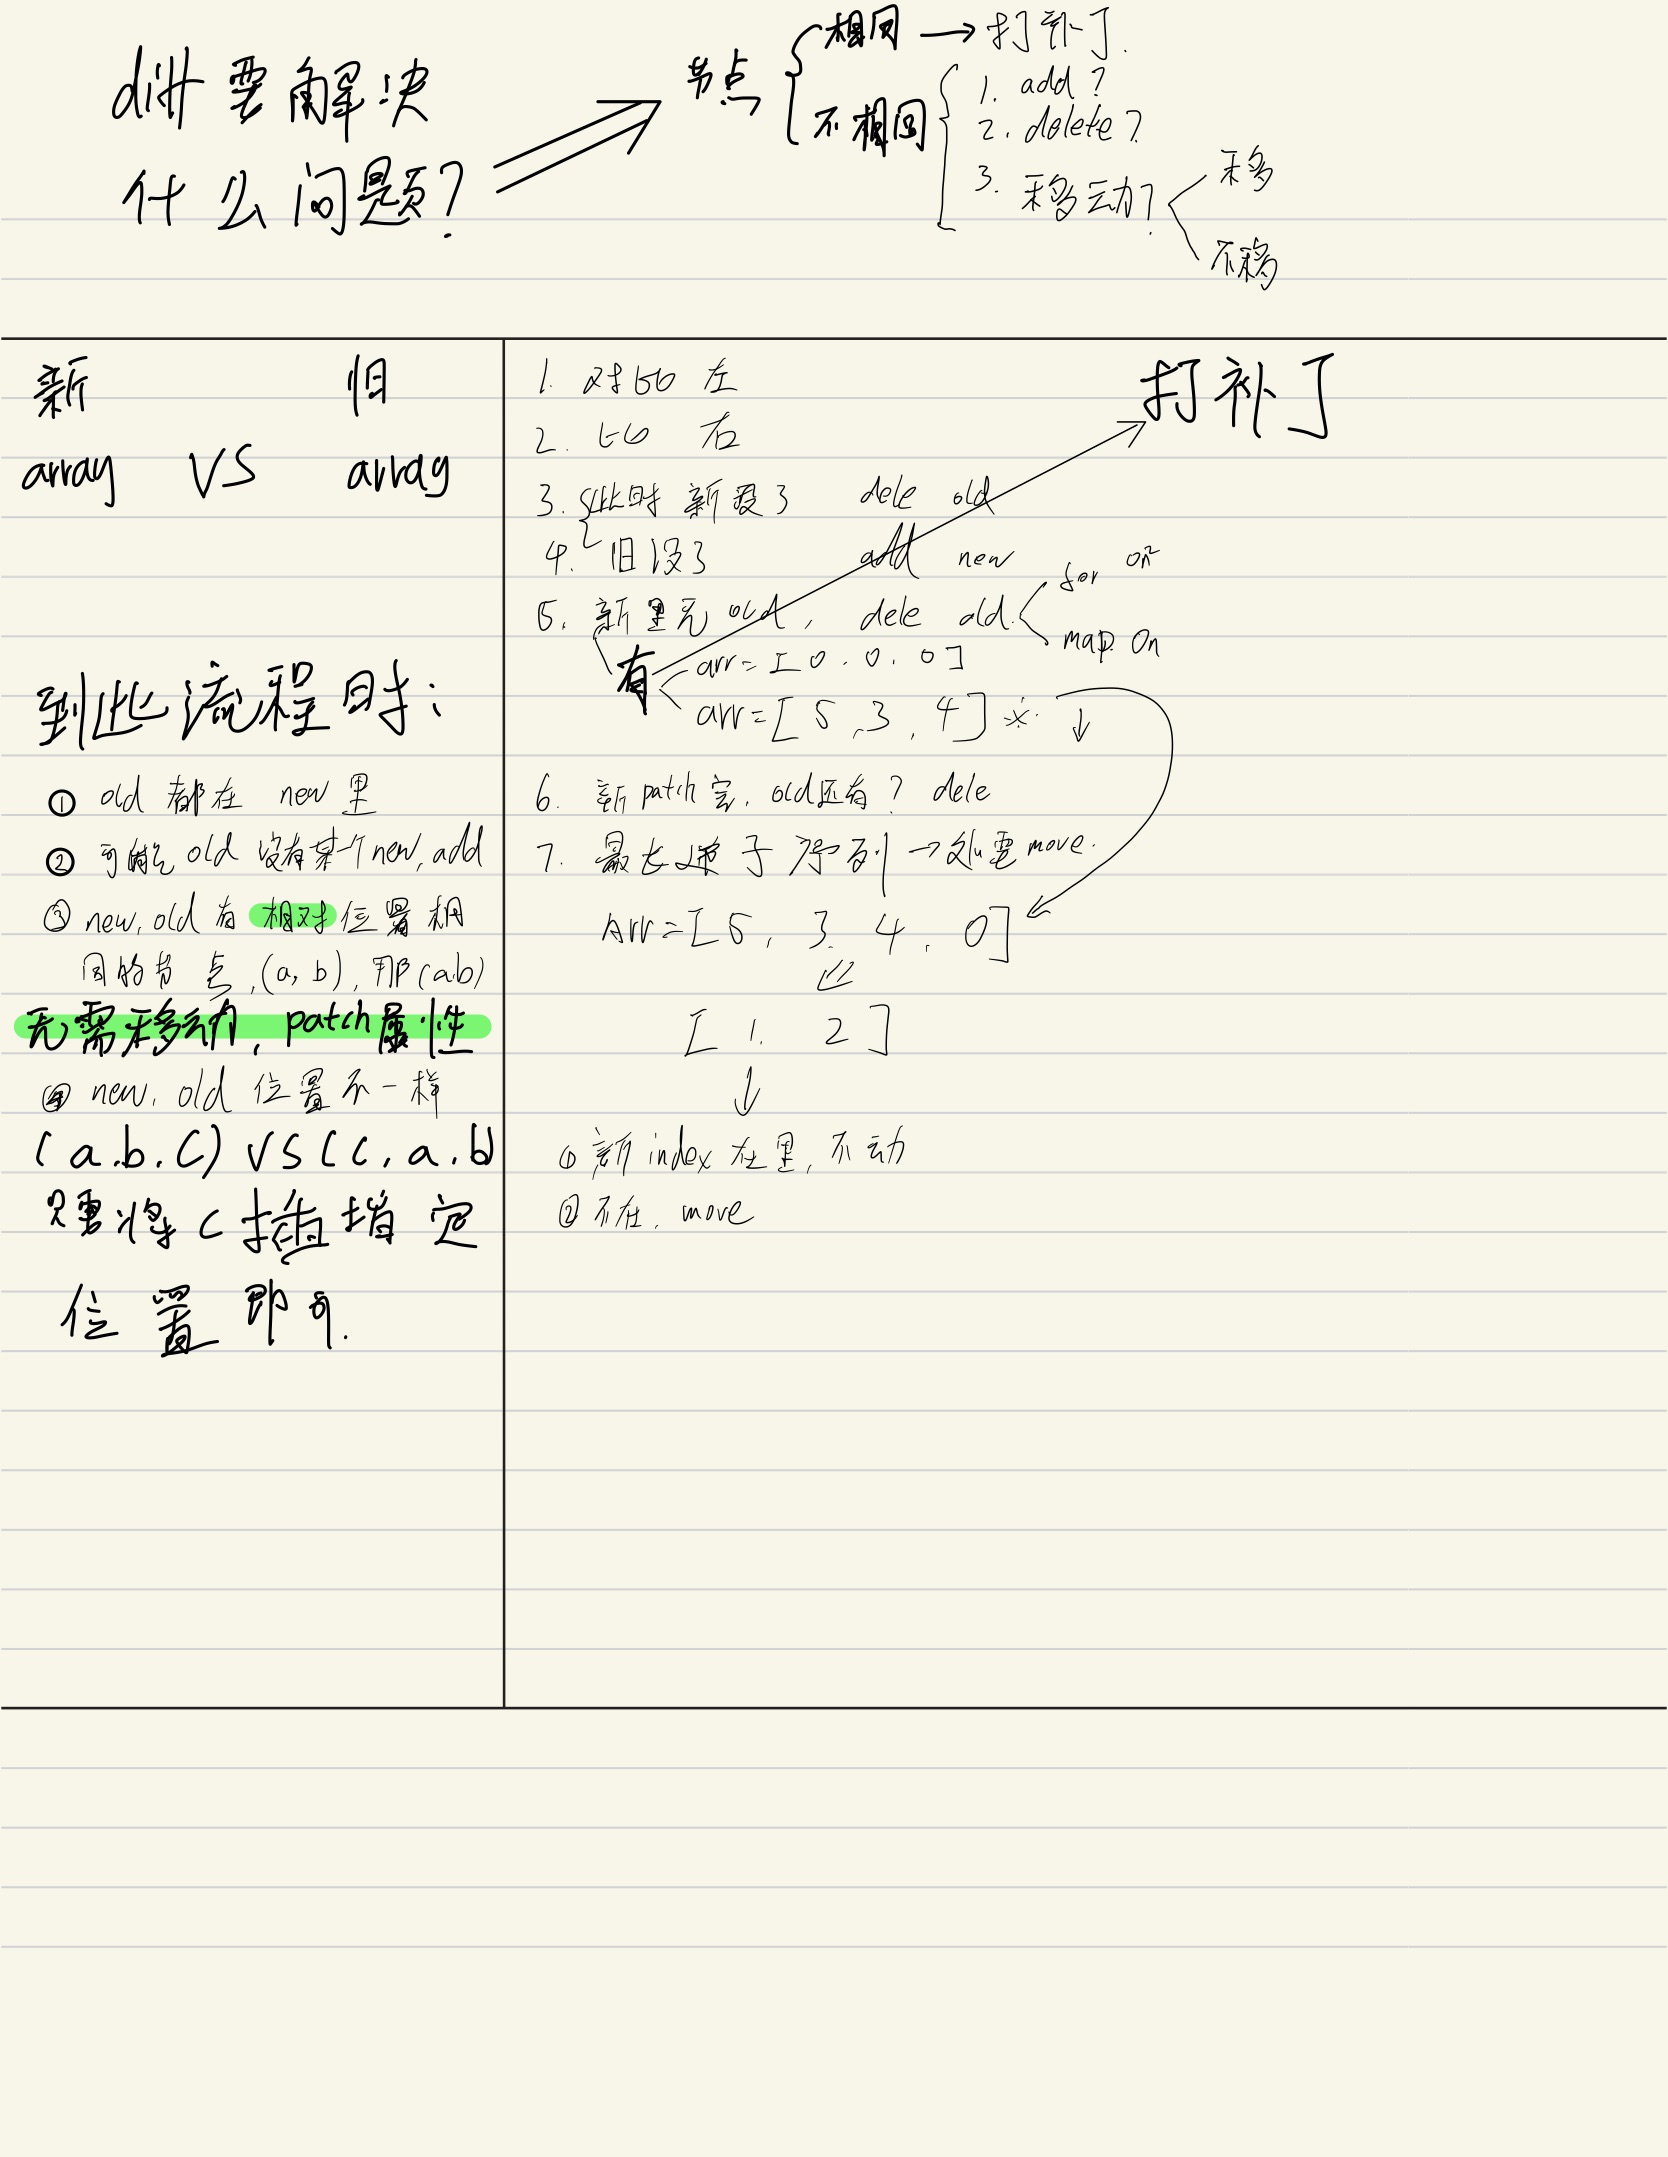 diff要解决
什么问题?
节点
相同 → 打补丁.
不相同
1. add?
2. delete?
3. 移动?
移
不移
新 旧
array VS array
到此流程时:
① old 都在 new 里
② 可能 old 没有某个new, add
③ new, old 有 相对 位置相
同的节点, (a, b), 那(a.b)
无需移动, patch属性
④ new. old 位置不一样
(a.b.c) VS (c, a, b
只需将c插指定
位置即可.
1. 对比 左
2. 比 右
3. 此时 新没了 dele old
4. 旧没了 add new
5. 新里无 old, dele old.
for on²
map. On
有
arr = [0. 0. 0]
arr = [5, 3, 4] ※. ↓
打补丁
6. 新patch完, old还有? dele
7. 最长递子序列 → 处理move.
Arr = [5, 3. 4. 0]
[1. 2]
↓
① 新index在里, 不动
② 不在. move